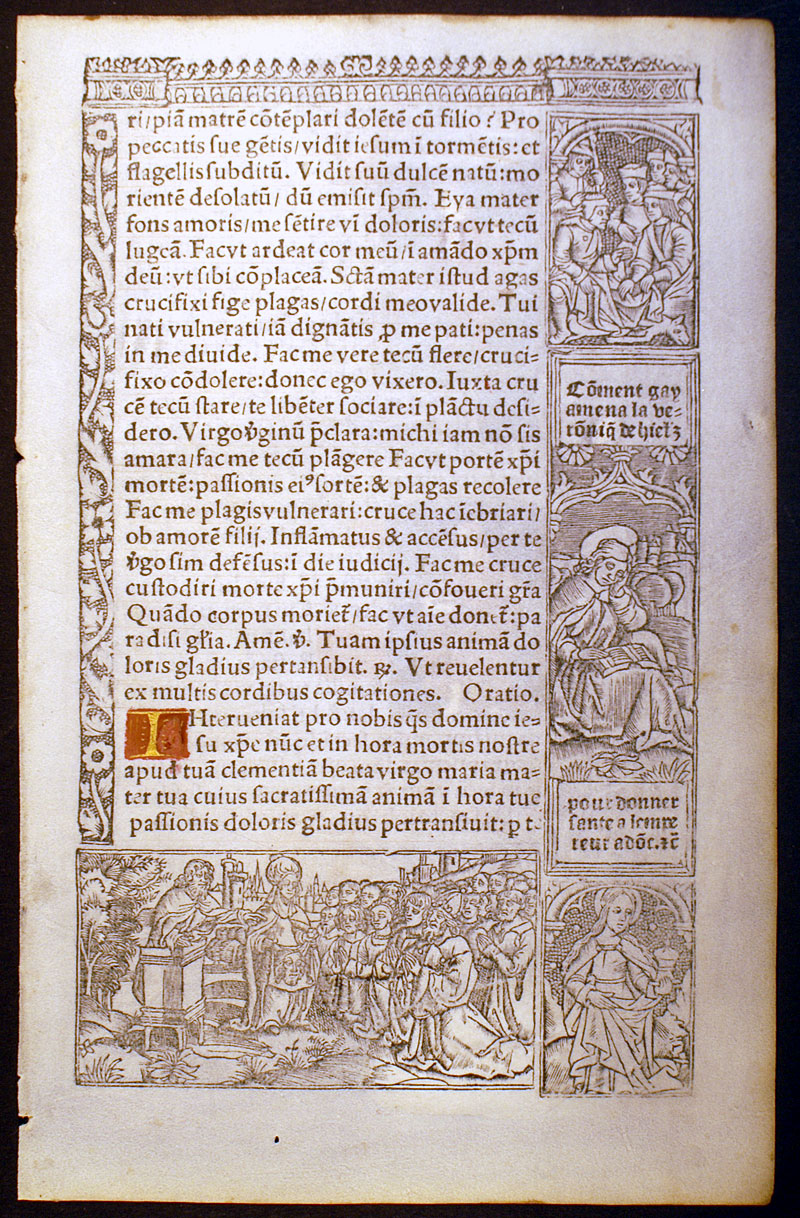 ri/piã matrẽ cõtẽplari dolẽtẽ cũ filio? Pro
peccatis sue gẽtis/vidit iesum ĩ tormẽtis: et
flagellis subditũ. Vidit suũ dulcẽ natũ: mo
rientẽ desolatũ/ dũ emisit spm̃. Eya mater
fons amoris/me sẽtire vĩ doloris: fac vt tecũ
lugeã. Fac vt ardeat cor meũ/ĩ amãdo xp̃m
deũ: vt sibi cõplaceã. Sctã mater istud agas
crucifixi fige plagas/cordi meo valide. Tui
nati vulnerati/iã dignãtis ꝓ me pati: penas
in me diuide. Fac me vere tecũ flere/cruci=
fixo cõdolere: donec ego vixero. Iuxta cru
cẽ tecũ stare/te libẽter sociare: ĩ plãctu desi=
dero. Virgo v̾ginũ p̃clara: michi iam nõ sis
amara/fac me tecũ plãgere Fac vt portẽ xp̃i
mortẽ: passionis eiꝰ sortẽ: & plagas recolere
Fac me plagis vulnerari: cruce hac ĩebriari/
ob amorẽ filij. Inflãmatus & accẽsus/per te
v̾go sim defẽsus: ĩ die iudicij. Fac me cruce
custodiri morte xp̃i p̃muniri/cõfoueri gr̃a
Quãdo corpus moriet᷑/fac vt aĩe donet᷑: pa
radisi gl̃ia. Amẽ. ℣. Tuam ipsius animã do
loris gladius pertansibit. ℟. Vt reuelentur
ex multis cordibus cogitationes. Oratio.
INterueniat pro nobis q̃s domine ie=
su xp̃e nũc et in hora mortis nostre
apud tuã clementiã beata virgo maria ma=
ter tua cuius sacratissimã animã ĩ hora tue
passionis doloris gladius pertransiuit: p t
Cõment gay
amena la ve=
rõniq̃ de hielꝫ
pour donner
sante a lempe
reur adõc. ⁊c̃